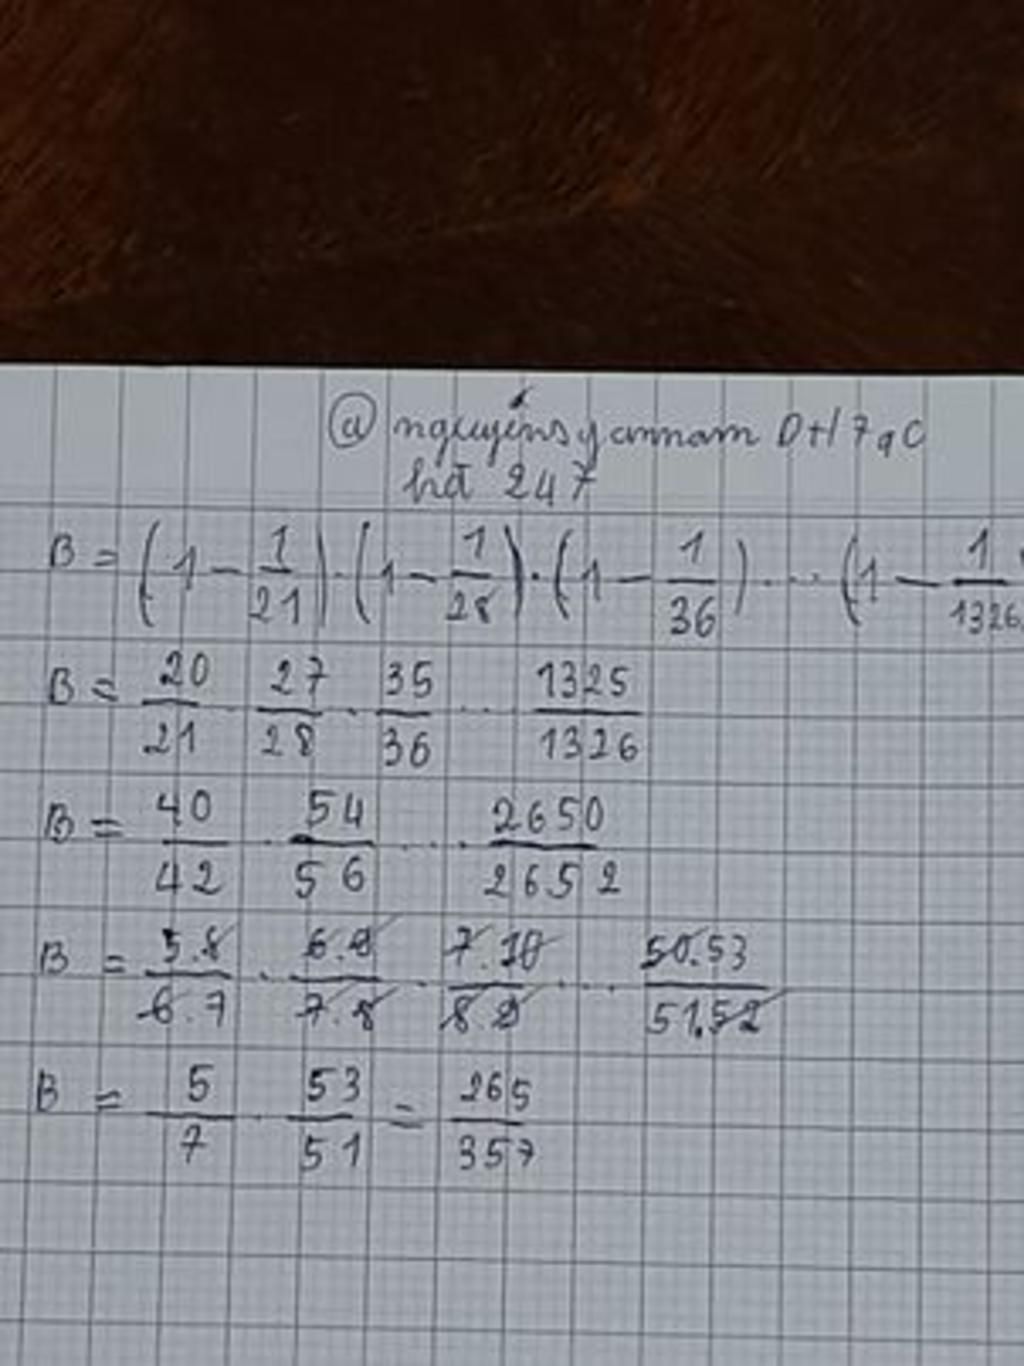 @ nguyénsyannam DH7qC
hđ 247
B = (1 - 1/21) . (1 - 1/28) . (1 - 1/36) .... (1 - 1/1326
B = 20/21 . 27/28 . 35/36 ... 1325/1326
B = 40/42 . 54/56 .... 2650/2652
B = 5.8/6.7 . 6.9/7.8 . 7.10/8.9 .... 50.53/51.52
B = 5/7 . 53/51 = 265/357